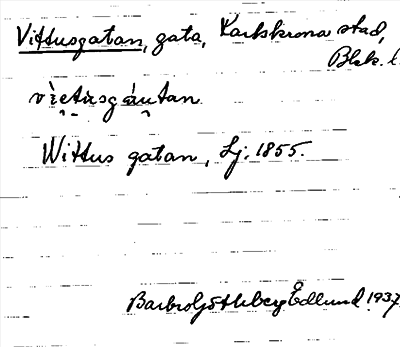 Vittusgatan, gata, Karlskrona stad,
Blek. l.
Wittus gatan, Lj. 1855.
Barbro Götheberg Edlund 1937